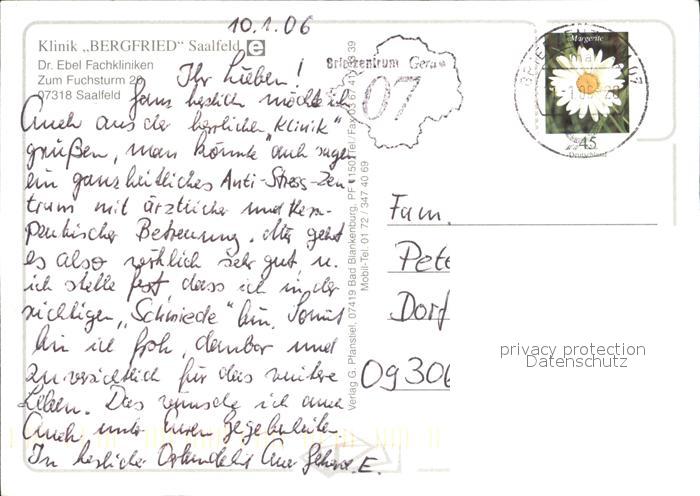 10.1.06
Klinik „BERGFRIED" Saalfeld
Dr. Ebel Fachkliniken
Zum Fuchsturm 20
07318 Saalfeld
Ihr Lieben!
Ganz herzlich möchte ich
Euch aus der herrlichen „Klinik"
grüßen, man könnte auch sagen
ein ganzheitliches Anti-Stress-Zen-
trum mit ärztlicher und thera-
peutischer Betreuung. Mir geht
es also wirklich sehr gut u.
ich stelle fest, dass ich in der
richtigen „Schmiede" bin. Somit
bin ich froh, dankbar und
zuversichtlich für das weitere
Leben. Das wünsche ich auch
Euch unter Euren Gegebenheiten
In herzlicher Euer E.
Verlag G. Pfanstiel, 07419 Bad Blankenburg, PF
Mobil-Tel. 01 72 / 347 40 69
Briefzentrum Gera
07
Margerite
45
Deutschland
Fam.
Pete
Dorf
0930
privacy protection
Datenschutz